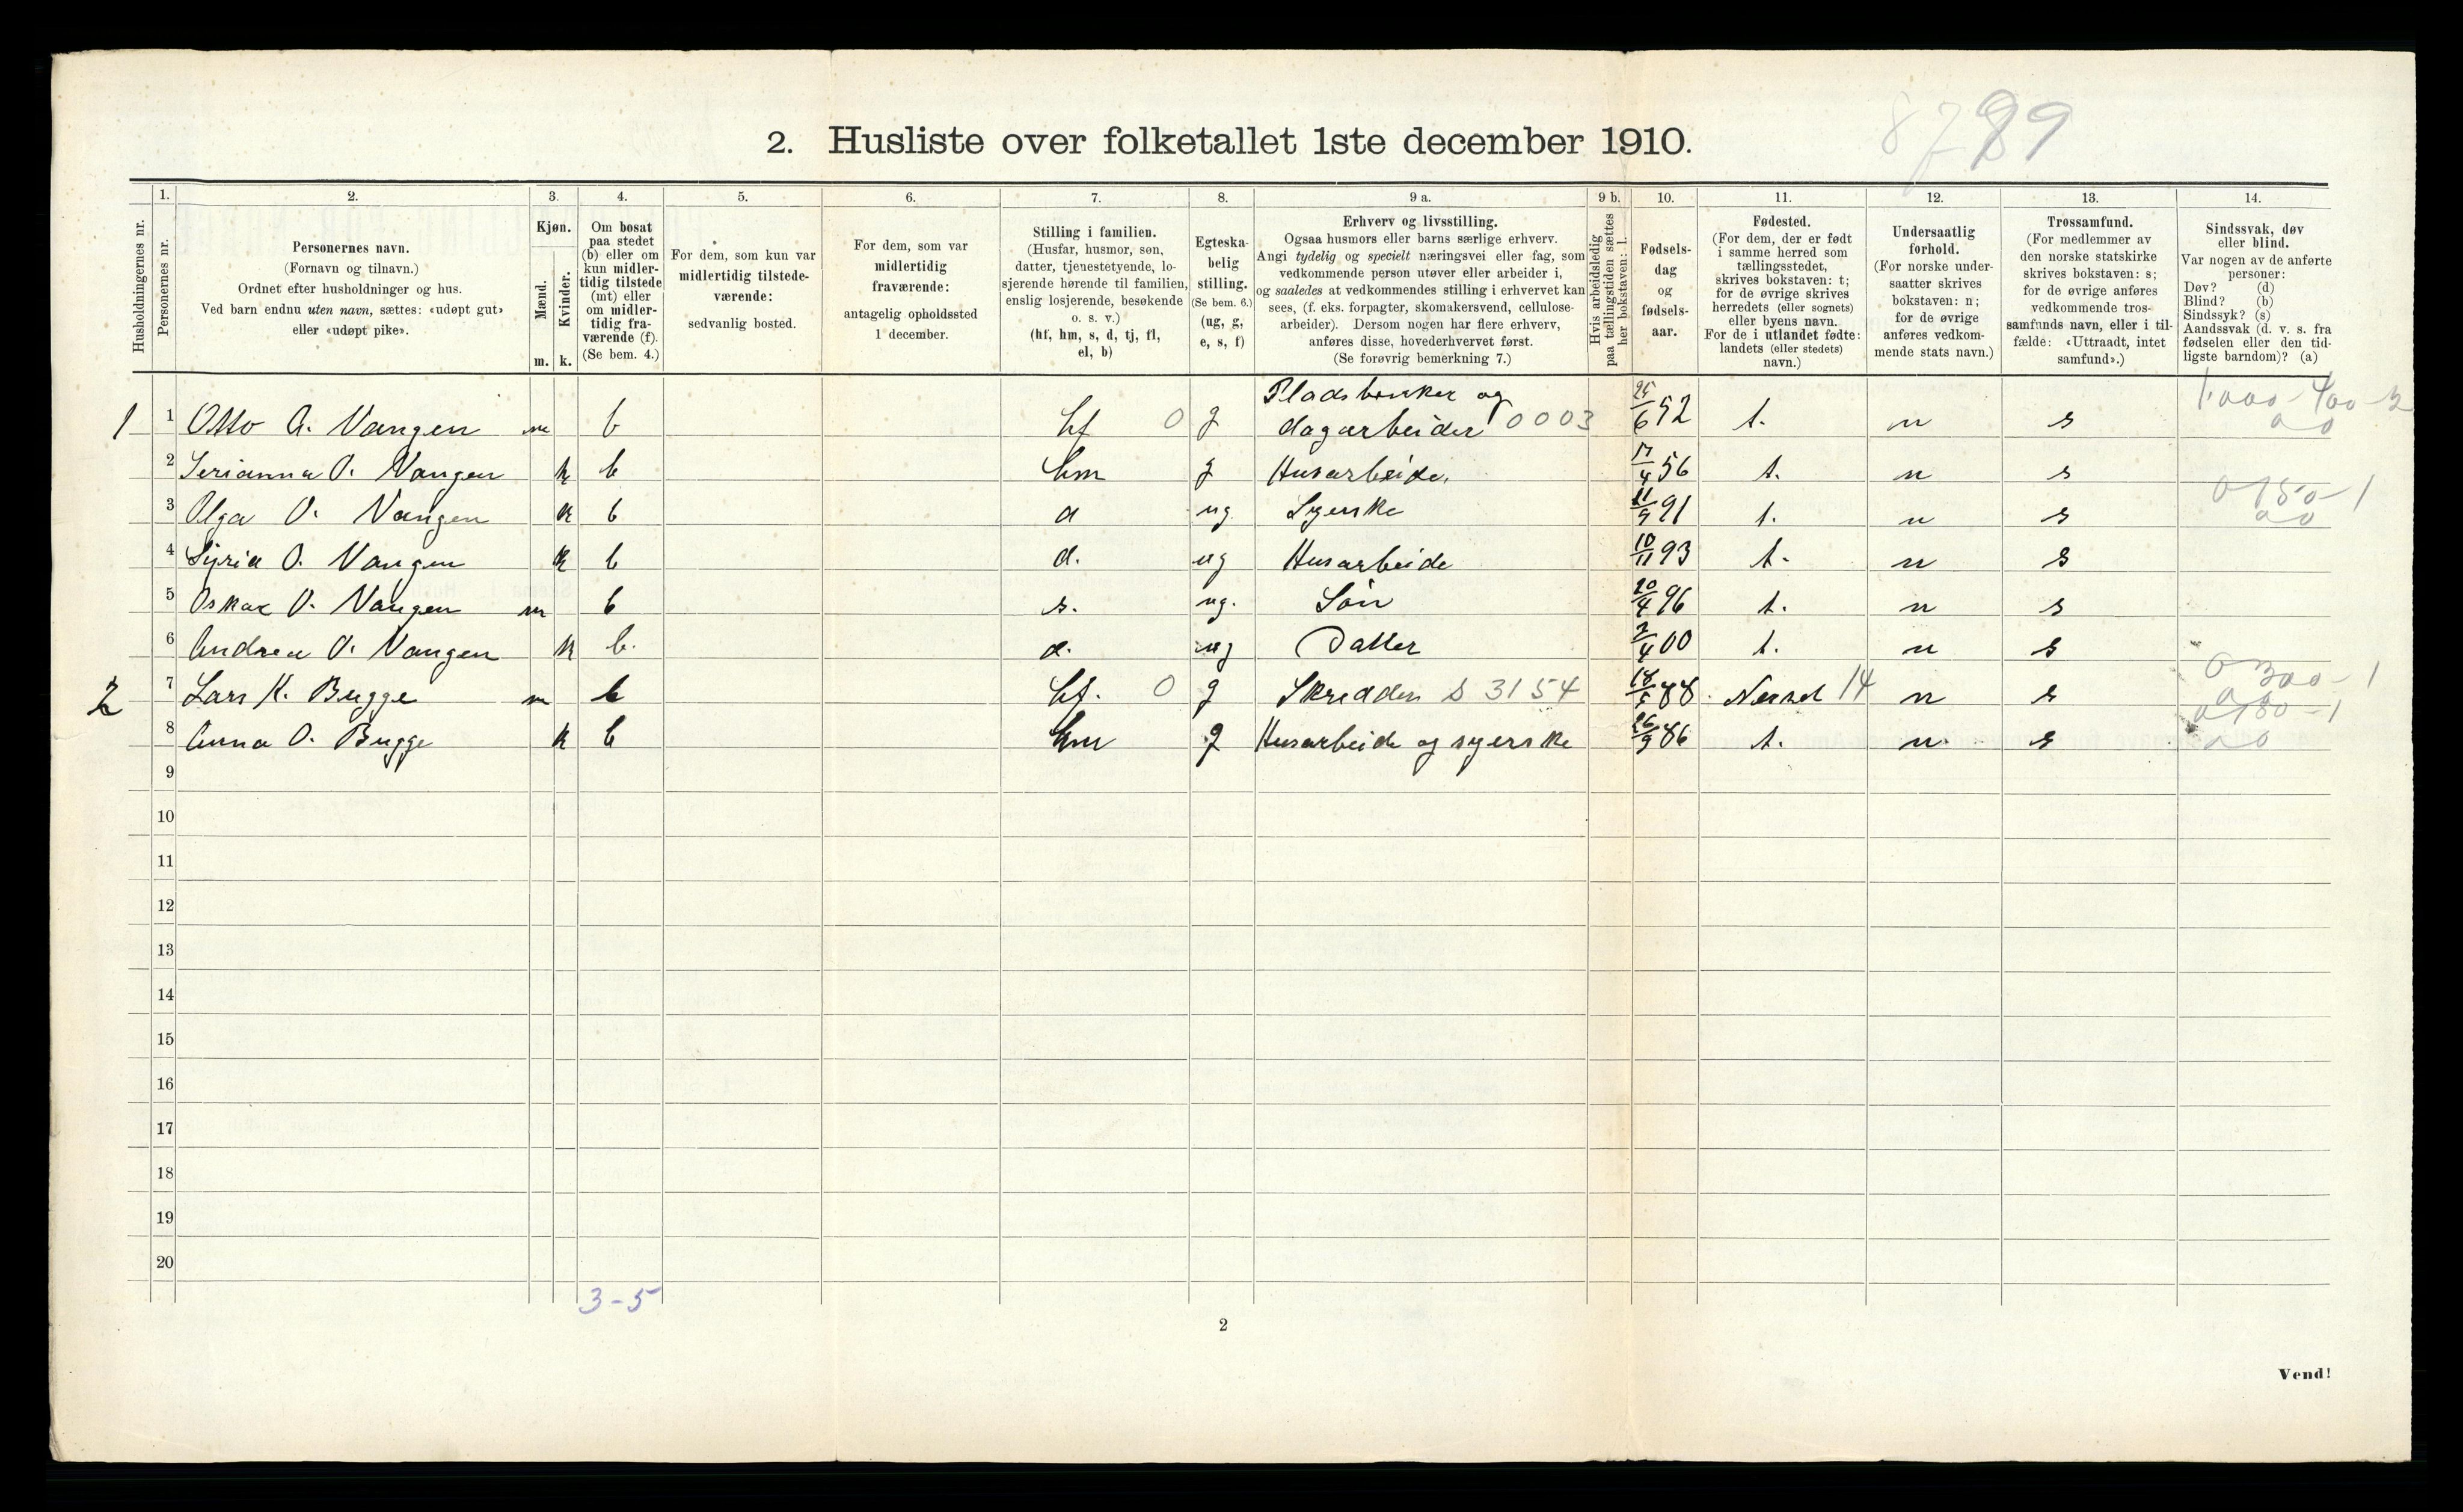 8789
2. Husliste over folketallet 1ste december 1910.
Husholdningernes nr.
1.
Personernes nr.
2.
Personernes navn.
(Fornavn og tilnavn.)
Ordnet efter husholdninger og hus.
Ved barn endnu uten navn, sættes: «udøpt gut»
eller «udøpt pike».
3.
Kjøn.
Mænd.
Kvinder.
m. k.
4.
Om bosat
paa stedet
(b) eller om
kun midler-
tidig tilstede
(mt) eller
om midler-
tidig fra-
værende (f).
(Se bem. 4.)
5.
For dem, som kun var
midlertidig tilstede-
værende:
sedvanlig bosted.
6.
For dem, som var
midlertidig
fraværende:
antagelig opholdssted
1 december.
7.
Stilling i familien.
(Husfar, husmor, søn,
datter, tjenestetyende, lo-
sjerende hørende til familien,
enslig losjerende, besøkende
o. s. v.)
(hf, hm, s, d, tj, fl,
el, b)
8.
Egteska-
belig
stilling.
(Se bem. 6.)
(ug, g,
e, s, f)
9 a.
Erhverv og livsstilling.
Ogsaa husmors eller barns særlige erhverv.
Angi tydelig og specielt næringsvei eller fag, som
vedkommende person utøver eller arbeider i,
og saaledes at vedkommendes stilling i erhvervet kan
sees, (f. eks. forpagter, skomakersvend, cellulose-
arbeider). Dersom nogen har flere erhverv,
anføres disse, hovederhvervet først.
(Se forøvrig bemerkning 7.)
9 b.
Hvis arbeidsledig
paa tællingstiden sættes
her bokstaven: l.
10.
Fødsels-
dag
og
fødsels-
aar.
11.
Fødested.
(For dem, der er født
i samme herred som
tællingsstedet,
skrives bokstaven: t;
for de øvrige skrives
herredets (eller sognets)
eller byens navn.
For de i utlandet fødte:
landets (eller stedets)
navn.)
12.
Undersaatlig
forhold.
(For norske under-
saatter skrives
bokstaven: n;
for de øvrige
anføres vedkom-
mende stats navn.)
13.
Trossamfund.
(For medlemmer av
den norske statskirke
skrives bokstaven: s;
for de øvrige anføres
vedkommende tros-
samfunds navn, eller i til-
fælde: «Uttraadt, intet
samfund».)
14.
Sindssvak, døv
eller blind.
Var nogen av de anførte
personer:
Døv? (d)
Blind? (b)
Sindssyk? (s)
Aandssvak (d. v. s. fra
fødselen eller den tid-
ligste barndom)? (a)
Pladsbruker og
1 1 Otto A. Vangen m b hf 0 g dagarbeider 0003 25/6 52 t. n s 1000-400-2
2 Serianna O. Vangen k b hm g Husarbeide. 17/4 56 t. n s
3 Olga O. Vangen k b d ug Syerske 11/9 91 t. n s 0-150-1
4 Syria O. Vangen k b d. ug Husarbeide 10/11 93 t. n s
5 Oskar O. Vangen m b s. ug. Søn 20/4 96 t. n s
6 Andrea O. Vangen k b. d. ug Datter 2/4 00 t. n s
2 7 Lars K. Bugge m b hf. 0 g Skredder S 3154 18/5 88 14 n s 0-300-1
8 Anna O. Bugge k b hm g Husarbeide og syerske 26/9 86 t. n. s 0-180-1
9
10
11
12
13
14
15
16
17
18
19
20
3-5
2
Vend!